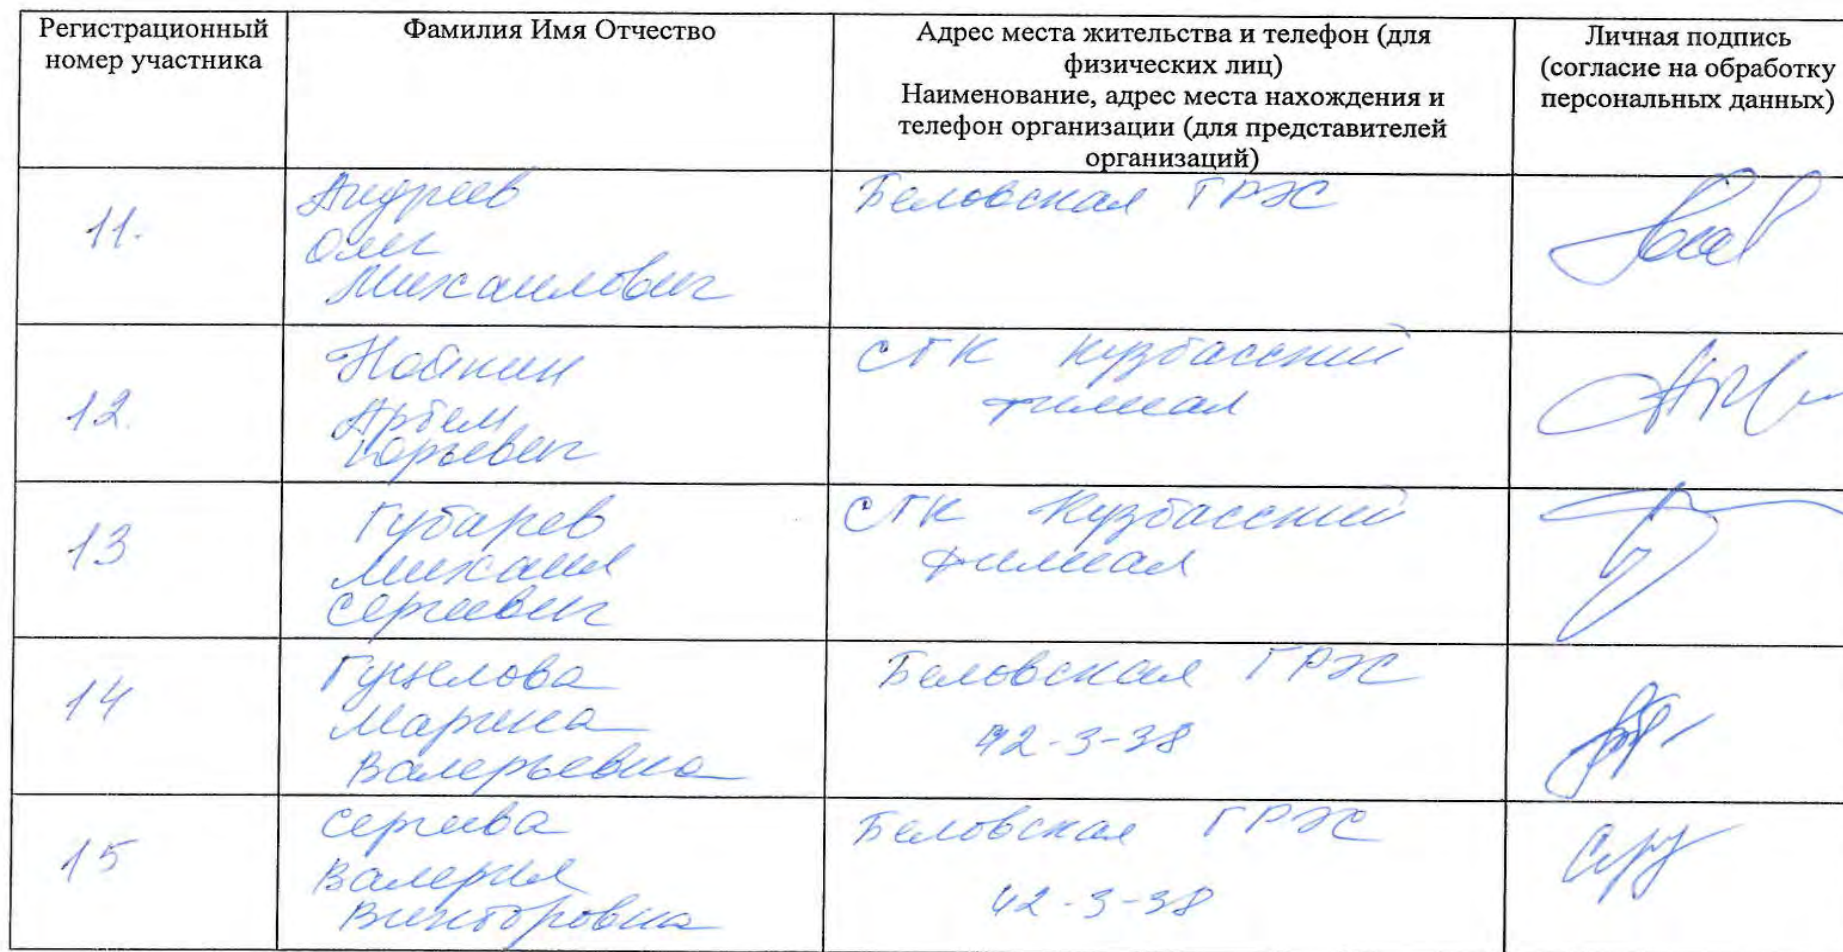 Регистрационный
номер участника
Фамилия Имя Отчество
Адрес места жительства и телефон (для
физических лиц)
Наименование, адрес места нахождения и
телефон организации (для представителей
организаций)
Личная подпись
(согласие на обработку
персональных данных)
11.
Андреев
Олег
Михайлович
Беловская ГРЭС
12.
Артем
Юрьевич
СГК Кузбасский
филиал
13
Губарев
Михаил
Сергеевич
СГК Кузбасский
филиал
14
Марина
Валерьевна
Беловская ГРЭС
42-3-38
15
Валерия
Викторовна
Беловская ГРЭС
42-3-38